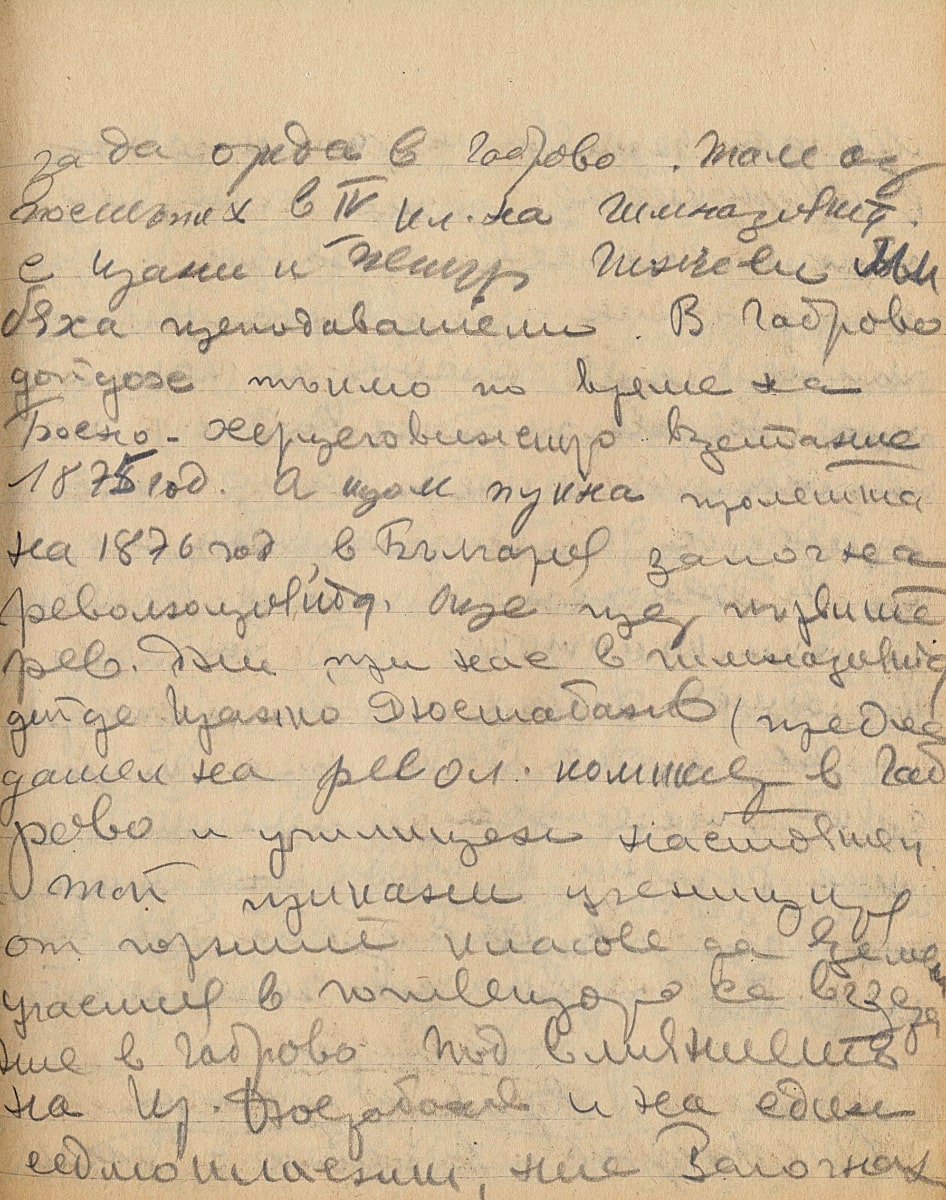 за да отида в Габрово. Там
постъпих в IV кл. на гимназията.
Цани и Петър Гинчеви ми
бяха преподаватели. В Габрово
дойдох тъкмо по време на
Босно-Херцеговинското Възстание
1875 год. А щом пукна пролетта
на 1876 год, в България започна
революцията. Още пред първите
рев. дни, при нас в гимназията
дойде Цанко Дюстабанов (предсе
дател на револ. комитет в Габ
рово и училищен настоятел
Той прикани ученици
от горните класове да вземем
участие в готвещото се възста
ние в Габрово. Под влиянието
на Ц. Дюстабанов и на един
седмокласник, ние Започнах